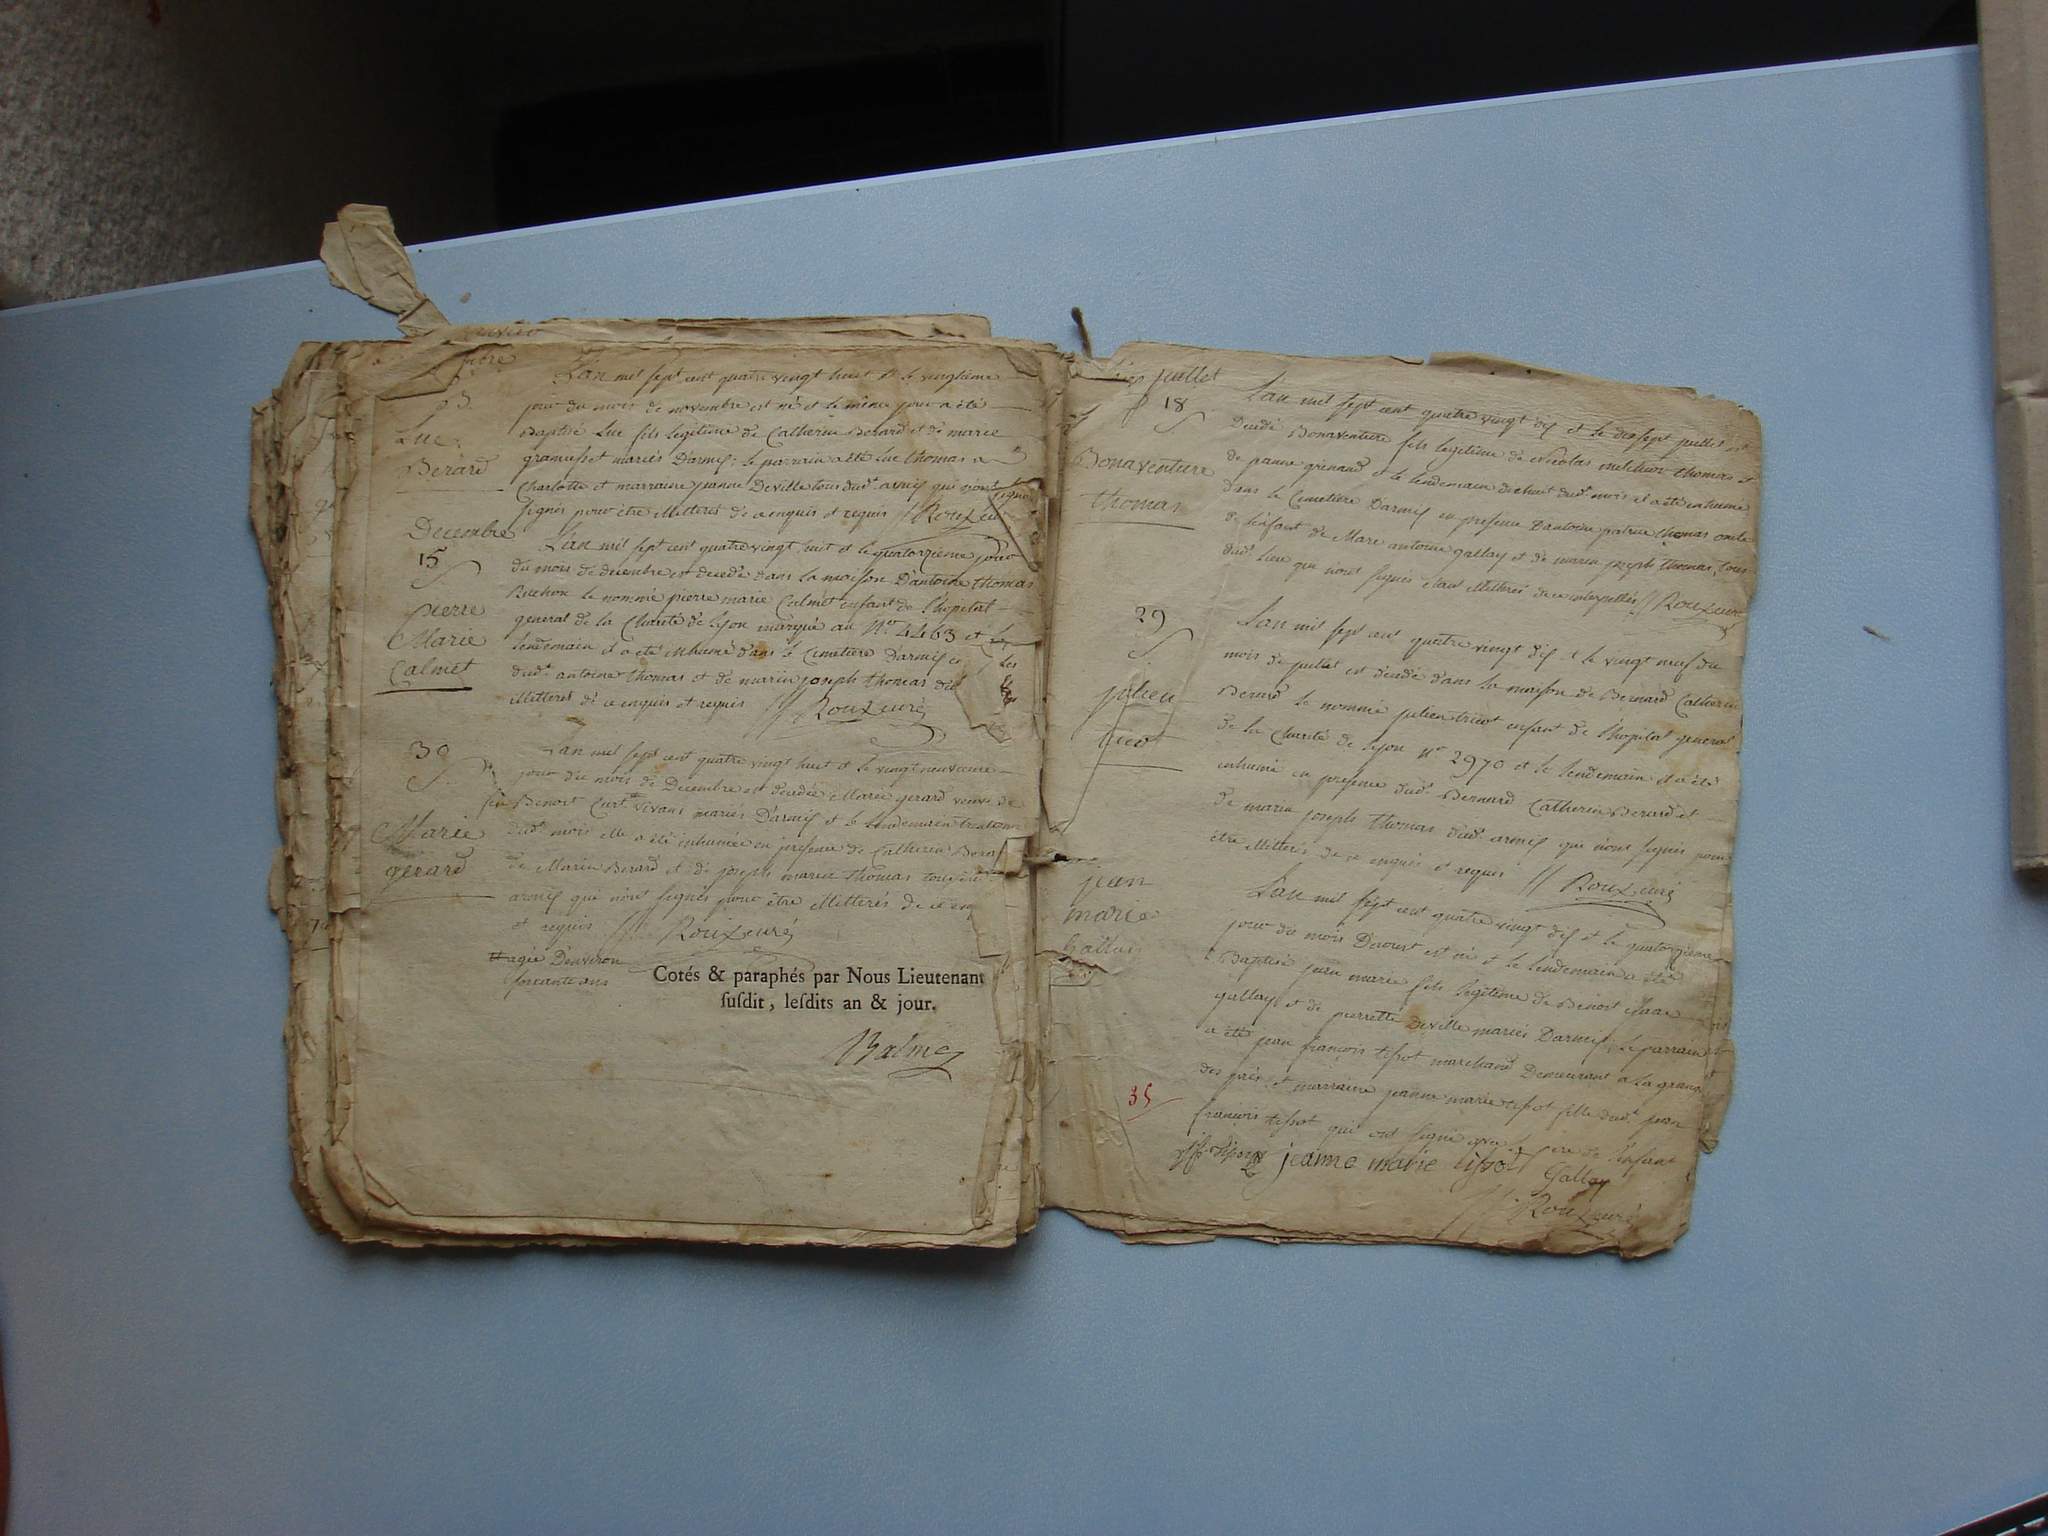 bre
23
Luc
Berard
L'an mil sept cent quatre vingt huit et le vingtieme
jour du mois de novembre est né et le même jour a été
Baptisé Luc fils legitime de Catherin Berard et de marie
mariés D'armis; le parrain a été Luc thomas
Charlotte et marraine jeanne Deville tous dud. armis qui n'ont
signés pour être illitterés de ce enquis et requis // Roux curé
Decembre
15
pierre
Marie
Calmet
L'an mil sept cent quatre vingt huit et le quatorzieme jour
du mois de decembre est decedé dans la maison D'antoine thomas
Buchon le nommé pierre marie Calmet enfant de l'hopital
general de la Charité de Lyon marqué au N.o 4463 et le
lendemain il a été inhumé dans le Cimetiere D'armis
dud. antoine thomas et de marin joseph thomas
illitterés de ce enquis et requis // Roux curé
30
Marie
gerard
L'an mil sept cent quatre vingt huit et le vingt neuvieme
jour du mois de Decembre est decedée Marie gerard veuve de
feu Benoit Curt vivans mariés D'armis et le lendemain trentieme
dud. mois elle a été inhumée en presence de Catherin Berard
de Marin Berard et de joseph marin thomas tous dud.
armis qui n'ont signés pour être illitterés de ce enquis
et requis // Roux curé
agée D'environ
soixante ans
Cotés & paraphés par Nous Lieutenant
susdit, lesdits an & jour.
Balme
juillet
18
Bonaventure
thomas
L'an mil sept cent quatre vingt dix et le dix sept juillet est
Decedé Bonaventure fils legitime de Nicolas melchior thomas et
de jeanne grenard et le lendemain dixhuit dud. mois il a été inhumé
dans le Cimetiere D'armis en presence D'antoine patrice thomas oncle
de l'enfant de Marc antoine gallay et de marin joseph thomas, tous
dud. lieu qui n'ont signés etant illitterés de ce interpellés // Roux curé
29
julien
tricot
L'an mil sept cent quatre vingt dix et le vingt neuf du
mois de juillet est decedé dans la maison de Bernard Catherin
Berard le nommé julien tricot enfant de l'hopital general
de la Charité de Lyon N.o 2970 et le lendemain il a été
inhumé en presence dud. Bernard Catherin Berard et
de marin joseph thomas dud. armis qui n'ont signés pour
être illitterés de ce enquis et requis // Roux curé
jean
marie
Gallay
L'an mil sept cent quatre vingt dix et le quatorzieme
jour du mois D'aoust est né et le lendemain a été
Baptisé jean marie fils legitime de Benoit isaac
gallay et de pierrette Deville mariés D'armis, le parrain
a été jean françois tissot marchand Demeurant a la grange
des prés et marraine jeanne marie tissot fille dud. jean
françois tissot qui ont signé avec le pere de l'enfant
35
jff. tissot jeanne marie tissot Gallay
// Roux curé